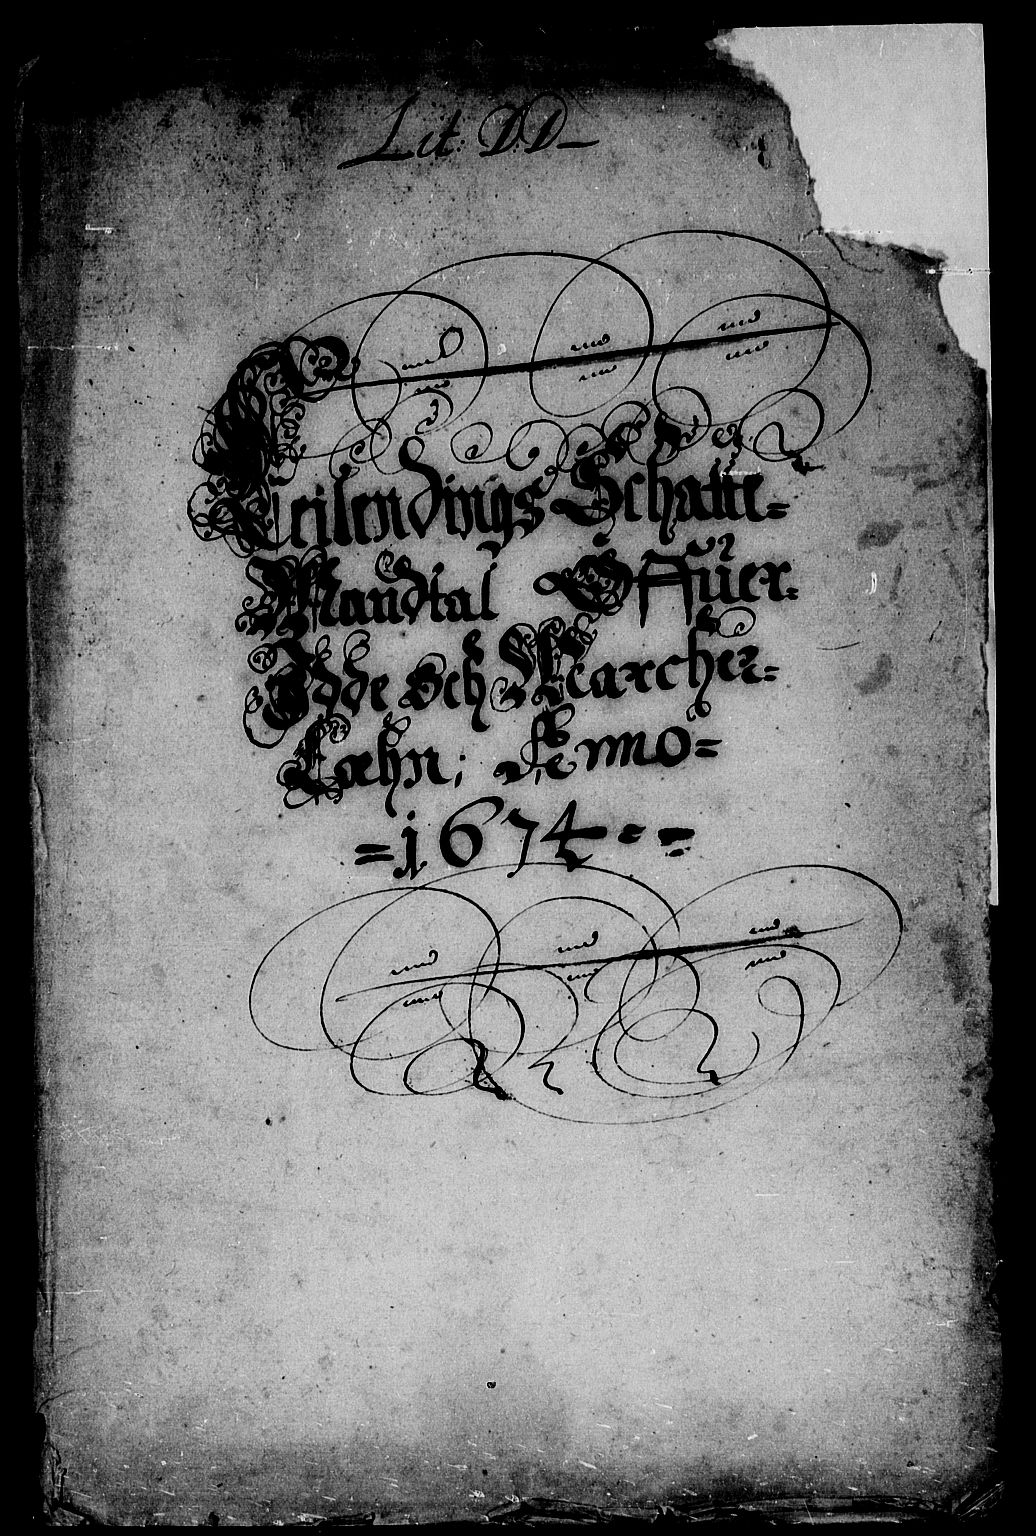 Lit: DD
Leilendings Schatte=
Mandtal Offuer
Idde Och Marcher=
Læhn; Anno=
=1674==